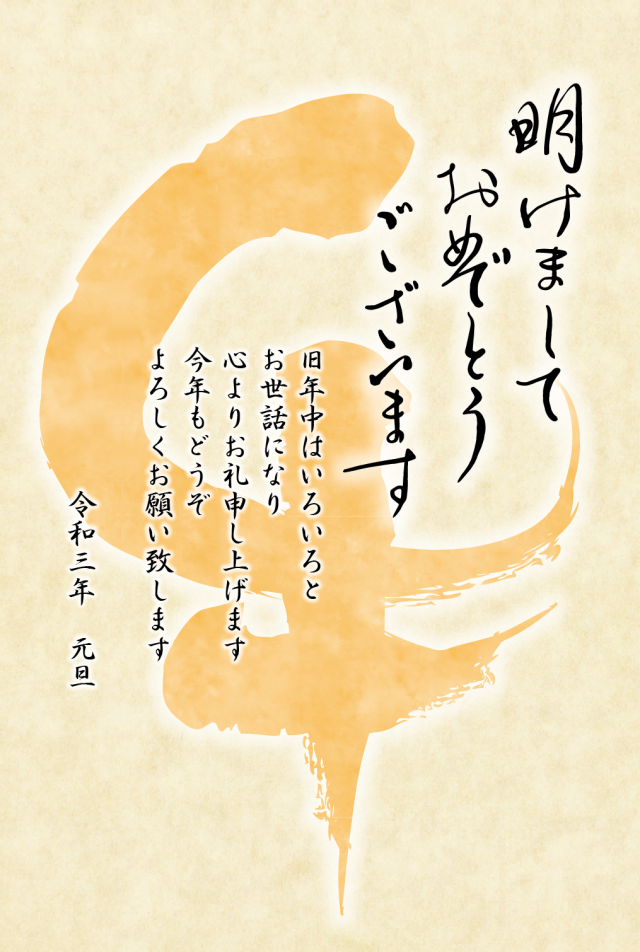 明けまして
おめでとう
ございます
旧年中はいろいろと
お世話になり
心よりお礼申し上げます
今年もどうぞ
よろしくお願い致します
令和三年　元旦